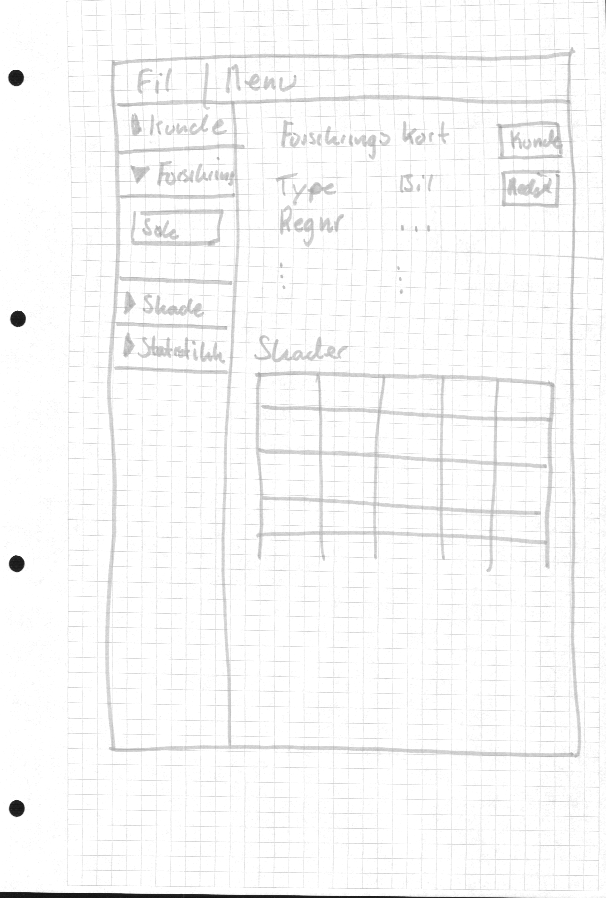 Fil | Menu
Kunde
Forsikring
Søk
Skade
Statistikk
Forsikrings Kort
Kunde
Type Bil
Regnr ...
Skader